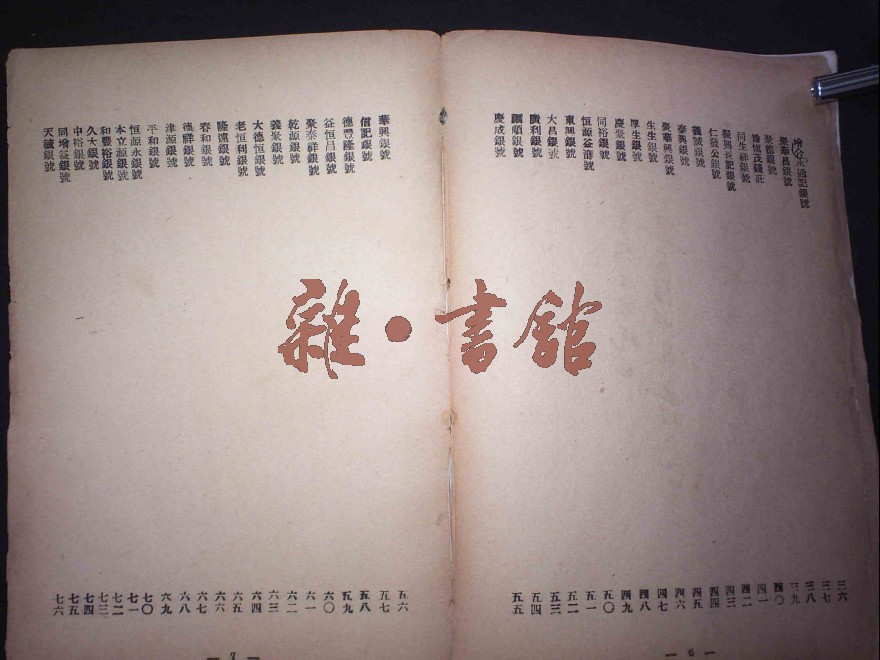 通記銀號 三六
聚華昌銀號 三七
聚德銀號 三八
豫慎茂錢莊 三九
同生祥銀號 四〇
振興長記銀號 四一
仁發公銀號 四二
義誠銀號 四三
泰興銀號 四四
聚華興銀號 四五
生生銀號 四六
厚生銀號 四七
慶聚銀號 四八
同裕銀號 四九
恒源益號 五〇
東興銀號 五一
大昌銀號 五二
廣利銀號 五三
順銀號 五四
慶成銀號 五五
— 6 —
華興銀號 五六
信記銀號 五七
德豐隆銀號 五八
益恒昌銀號 五九
聚泰祥銀號 六〇
乾源銀號 六一
義聚銀號 六二
大德恒銀號 六三
老恒利銀號 六四
隆遠銀號 六五
春和銀號 六六
德祥銀號 六七
津源銀號 六八
平和銀號 六九
恒源永銀號 七〇
本立源銀號 七一
和豐裕銀號 七二
久大銀號 七三
中裕銀號 七四
同增益銀號 七五
天誠銀號 七六
— 7 —
雜·書館